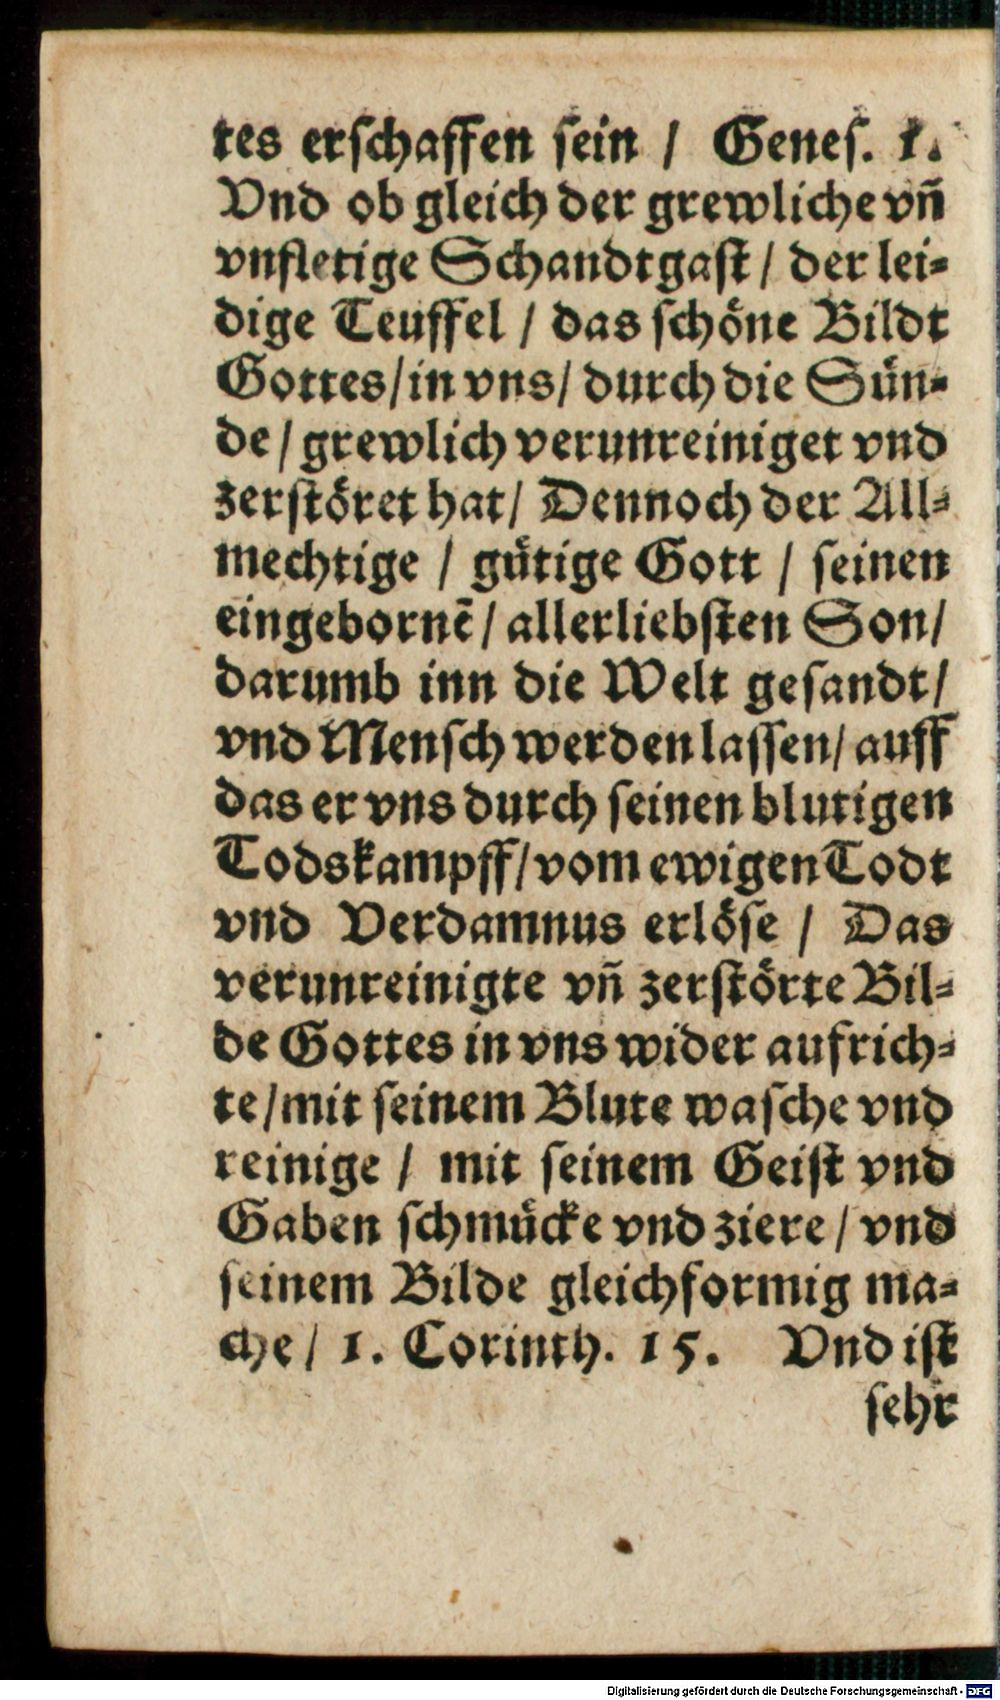 tes erſchaffen ſein / Geneſ. 1.
Vnd ob gleich der grewliche vñ
vnfletige Schandtgaſt / der lei⸗
dige Teuffel / das ſchöne Bildt
Gottes / in vns / durch die Sün⸗
de / grewlich verunreiniget vnd
zerſtöret hat / Dennoch der All⸗
mechtige / gütige Gott / ſeinen
eingebornē / allerliebſten Son /
darumb inn die Welt geſandt /
vnd Menſch werden laſſen / auff
das er vns durch ſeinen blutigen
Todskampff / vom ewigen Todt
vnd Verdamnus erlöſe / Das
verunreinigte vñ zerſtörte Bil⸗
de Gottes in vns wider aufrich⸗
te / mit ſeinem Blute waſche vnd
reinige / mit ſeinem Geiſt vnd
Gaben ſchmücke vnd ziere / vnd
ſeinem Bilde gleichformig ma⸗
che / 1. Corinth. 15. Vnd iſt
ſehr
Digitalisierung gefördert durch die Deutsche Forschungsgemeinschaft - DFG